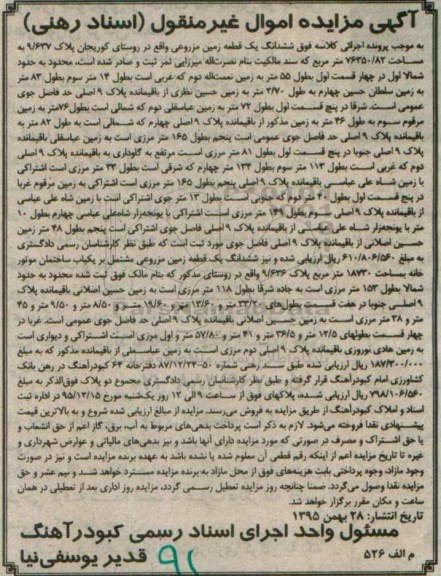 آگهی مزایده اموال غیرمنقول (اسناد رهنی)
به موجب پرونده اجرائی کلاسه فوق ششدانگ یک قطعه زمین مزروعی واقع در روستای کوریجان پلاک ۹/۶۳۷ به
مساحت ۷۶۳۵۰/۸۲ متر مربع که سند مالکیت بنام نصرت‌اله میرزایی ثمر ثبت و صادر شده است، محدوده به حدود
شمالا اول در چهار قسمت اول بطول ۵۵ متر به زمین نعمت‌اله دوم که غربی است بطول ۱۴ متر سوم بطول ۸۳ متر
به زمین سلطان حسین چهارم به طول ۲/۷۰ متر به زمین حسین نظری از باقیمانده پلاک ۹ اصلی حد فاصل جوی
عمومی است. شرقا در پنج قسمت اول بطول ۷۲ متر به زمین عباسقلی دوم که شمالی است بطول ۷۶متر به زمین
مرقوم سوم به طول ۴۶ متر به زمین مذکور از باقیمانده پلاک ۹ اصلی چهارم که شمالی است به طول ۸۲ متر به
باقیمانده پلاک ۹ اصلی حد فاصل جوی عمومی است پنجم بطول ۱۶۵ متر مرزی است به زمین عباسقلی باقیمانده
پلاک ۹ اصلی جنوبا در پنج قسمت اول بطول ۸۱ متر مرزی است مرتفع به گاوداری به باقیمانده پلاک ۹ اصلی
دوم که غربی است بطول ۱۱۳ متر سوم بطول ۱۳۳ متر چهارم که شرقی است بطول ۳۳ متر مرزی است اشتراکی
با زمین شاه علی عباسی باقیمانده پلاک ۹ اصلی پنجم بطول ۱۶۵ متر مرزی است اشتراکی به زمین مرقوم غربا
در پنج قسمت اول بطول ۴۰ متر دوم که جنوبی است بطول ۱۳ متر جوی اشتراکی است با زمین شاه علی عباسی
از باقیمانده پلاک ۹ اصلی سوم بطول ۱۴۹ متر مرزی است اشتراکی با یونجه‌زار شاه‌علی عباسی چهارم بطول ۱۰
متر با یونجه‌زار شاه علی عباسی از باقیمانده پلاک ۹ اصلی فاصل جوی اشتراکی است پنجم بطول ۴۸ متر زمین
حسین اصلانی از باقیمانده پلاک ۹ اصلی فاصل جوی مورد ثبت است که طبق نظر کارشناسان رسمی دادگستری
به مبلغ ۶۱۰/۸۰۶/۵۶۰ ریال ارزیابی شده و نیز ششدانگ یک قطعه زمین مزروعی مشتمل بر یکباب ساختمان موتور
خانه بمساحت ۱۸۷۳۰ متر مربع پلاک ۹/۶۳۶ واقع در روستای مذکور که بنام مالک فوق ثبت شده محدود به حدود
شمالا بطول ۱۵۳ متر مرزی است به جاده شرقا بطول ۱۱۸ متر مرزی است به زمین حسین اصلانی باقیمانده پلاک
۹ اصلی جنوبا در هفت قسمت بطول‌های ۳۳/۲۰ متر و ۱۳/۶۰ متر و ۱۹/۶۰ متر و ۸/۵۰ متر و ۹/۵۰ متر و ۴۵
متر و ۳۸ متر مرزی است به زمین حسین اصلانی باقیمانده پلاک ۹ اصلی حد فاصل جوی عمومی است. غربا در
چهار قسمت بطولهای ۱۲/۵ متر و ۳۶/۵ متر و ۴۱ متر و ۵۷/۸۰ متر و اول مرزی است اشتراکی و دیواری است
به زمین هادی نوروزی باقیمانده پلاک ۹ اصلی دوم مرزی است به زمین عباسعلی از باقیمانده مذکور که به مبلغ
۱۸۷/۳۰۰/۰۰۰ ریال ارزیابی شده طبق سند رهنی شماره ۵۰-۸۷/۱۲/۲۴ دفترخانه ۶۴ کبودرآهنگ در رهن بانک
کشاورزی امام کبودرآهنگ قرار گرفته و طبق نظر کارشناسان رسمی دادگستری مجموع دو پلاک فوق‌الذکر به مبلغ
۷۹۸/۱۰۶/۵۶۰ ریال ارزیابی شده، پلاکهای فوق از ساعت ۹ الی ۱۲ روز یکشنبه مورخ ۹۵/۱۲/۱۵ در اداره ثبت
اسناد و املاک کبودرآهنگ از طریق مزایده به فروش می‌رسند. مزایده از مبالغ ارزیابی شده شروع و به بالاترین قیمت
پیشنهادی نقدا فروخته می‌شود. لازم به ذکر است پرداخت بدهی‌های مربوط به آب، برق، گاز اعم از حق انشعاب و
یا حق اشتراک و مصرف در صورتی که مورد مزایده دارای آنها باشد و نیز بدهی‌های مالیاتی و عوارض شهرداری و
غیره تا تاریخ مزایده اعم از اینکه رقم قطعی آن معلوم شده یا نشده باشد به عهده برنده مزایده است و نیز در صورت
وجود مازاد، وجوه پرداختی بابت هزینه‌های فوق از محل مازاد به برنده مزایده مسترد خواهد شد و نیم عشر و حق
مزایده نقدا وصول می‌گردد. ضمنا چنانچه روز مزایده تعطیل رسمی گردد، مزایده روز اداری بعد از تعطیلی در همان
ساعت و مکان مقرر برگزار خواهد شد.
تاریخ انتشار: ۲۸ بهمن ۱۳۹۵
مسئول واحد اجرای اسناد رسمی کبودرآهنگ
م الف ۵۲۶ ۹۱ قدیر یوسفی‌نیا